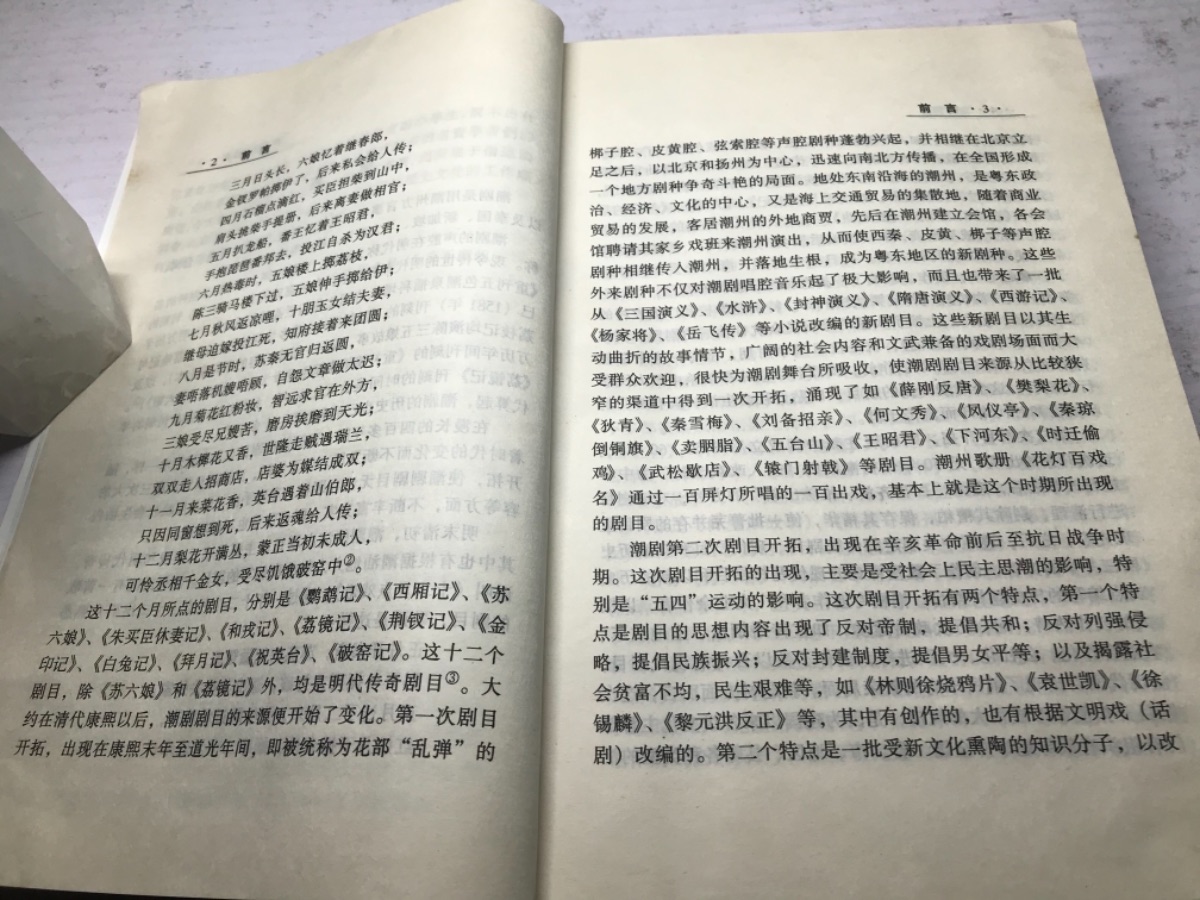 ·2· 前言
三月日头长，六娘忆着继春郎，
金钗罗帕掷伊了，后来私会给人传；
四月石榴点滴红，买臣担柴到山中，
肩头挑柴手提册，后来离妻做相官；
五月扒龙船，番王忆着王昭君，
手抱琵琶番邦去，投江自杀为汉君；
六月热毒时，五娘楼上掷荔枝，
陈三骑马楼下过，五娘伸手掷给伊；
七月秋风返凉哩，十朋玉女结夫妻，
继母迫嫁投江死，知府接着来团圆；
八月是节时，苏秦无官归返圆，
妻唔落机嫂唔顾，自怨文章做太迟；
九月菊花红粉妆，智远求官在外方，
三娘受尽兄嫂苦，磨房挨磨到天光；
十月木樨花又香，世隆走贼遇瑞兰，
双双走入招商店，店婆为媒结成双；
十一月来菜花香，英台遇着山伯郎，
只因同窗想到死，后来返魂给人传；
十二月梨花开满丛，蒙正当初未成人，
可怜丞相千金女，受尽饥饿破窑中②。
这十二个月所点的剧目，分别是《鹦鹉记》、《西厢记》、《苏
六娘》、《朱买臣休妻记》、《和戎记》、《荔镜记》、《荆钗记》、《金
印记》、《白兔记》、《拜月记》、《祝英台》、《破窑记》。这十二个
剧目，除《苏六娘》和《荔镜记》外，均是明代传奇剧目③。大
约在清代康熙以后，潮剧剧目的来源便开始了变化。第一次剧目
开拓，出现在康熙末年至道光年间，即被统称为花部“乱弹”的
前言 ·3·
梆子腔、皮黄腔、弦索腔等声腔剧种蓬勃兴起，并相继在北京立
足之后，以北京和扬州为中心，迅速向南北方传播，在全国形成
一个地方剧种争奇斗艳的局面。地处东南沿海的潮州，是粤东政
治、经济、文化的中心，又是海上交通贸易的集散地，随着商业
贸易的发展，客居潮州的外地商贾，先后在潮州建立会馆，各会
馆聘请其家乡戏班来潮州演出，从而使西秦、皮黄、梆子等声腔
剧种相继传入潮州，并落地生根，成为粤东地区的新剧种。这些
外来剧种不仅对潮剧唱腔音乐起了极大影响，而且也带来了一批
从《三国演义》、《水浒》、《封神演义》、《隋唐演义》、《西游记》、
《杨家将》、《岳飞传》等小说改编的新剧目。这些新剧目以其生
动曲折的故事情节，广阔的社会内容和文武兼备的戏剧场面而大
受群众欢迎，很快为潮剧舞台所吸收，使潮剧剧目来源从比较狭
窄的渠道中得到一次开拓，涌现了如《薛刚反唐》、《樊梨花》、
《狄青》、《秦雪梅》、《刘备招亲》、《何文秀》、《凤仪亭》、《秦琼
倒铜旗》、《卖胭脂》、《五台山》、《王昭君》、《下河东》、《时迁偷
鸡》、《武松歇店》、《辕门射戟》等剧目。潮州歌册《花灯百戏
名》通过一百屏灯所唱的一百出戏，基本上就是这个时期所出现
的剧目。
潮剧第二次剧目开拓，出现在辛亥革命前后至抗日战争时
期。这次剧目开拓的出现，主要是受社会上民主思潮的影响，特
别是“五四”运动的影响。这次剧目开拓有两个特点，第一个特
点是剧目的思想内容出现了反对帝制，提倡共和；反对列强侵
略，提倡民族振兴；反对封建制度，提倡男女平等；以及揭露社
会贫富不均，民生艰难等，如《林则徐烧鸦片》、《袁世凯》、《徐
锡麟》、《黎元洪反正》等，其中有创作的，也有根据文明戏（话
剧）改编的。第二个特点是一批受新文化熏陶的知识分子，以改